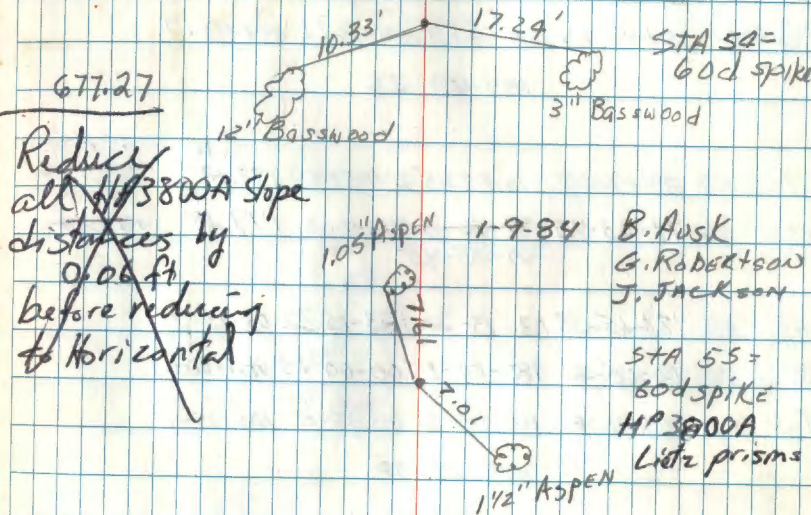 10.33'
17.24'
STA 54=
60d spike
677.27
12" Basswood
3" Basswood
Reduce
all HP3800A Slope
distances by
0.06 ft
before reducing
to Horizontal
1.05" ASPEN
1-9-84
B. AUSK
G. ROBERTSON
J. JACKSON
7.61
STA 55=
60d SPIKE
HP3800A
Lietz prisms
7.01
1 1/2" ASPEN